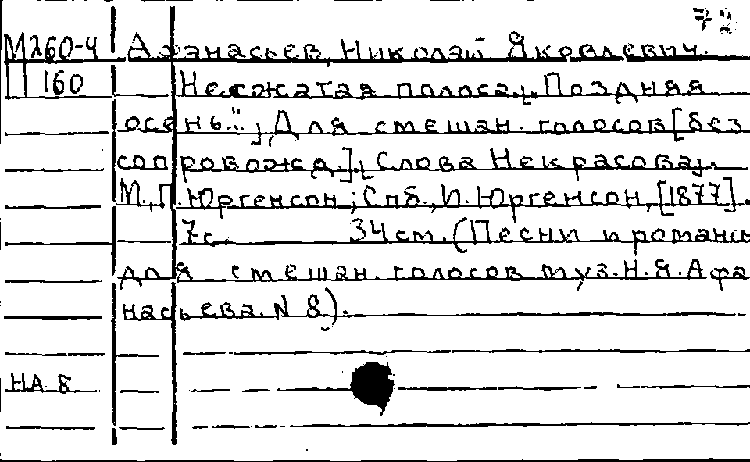 72
М260-4 Афанасьев, Николай Яковлевич.
П 160 Несжатая полоса. „Поздняя
осень..."; Для смешан. голосов [без
сопровожд.]. [Слова Некрасова].
М., П. Юргенсон; Спб., И. Юргенсон, [1877].
7с. 34см. (Песни и романсы
для смешан. голосов муз. Н.Я. Афа
насьева. N 8).
НА 8